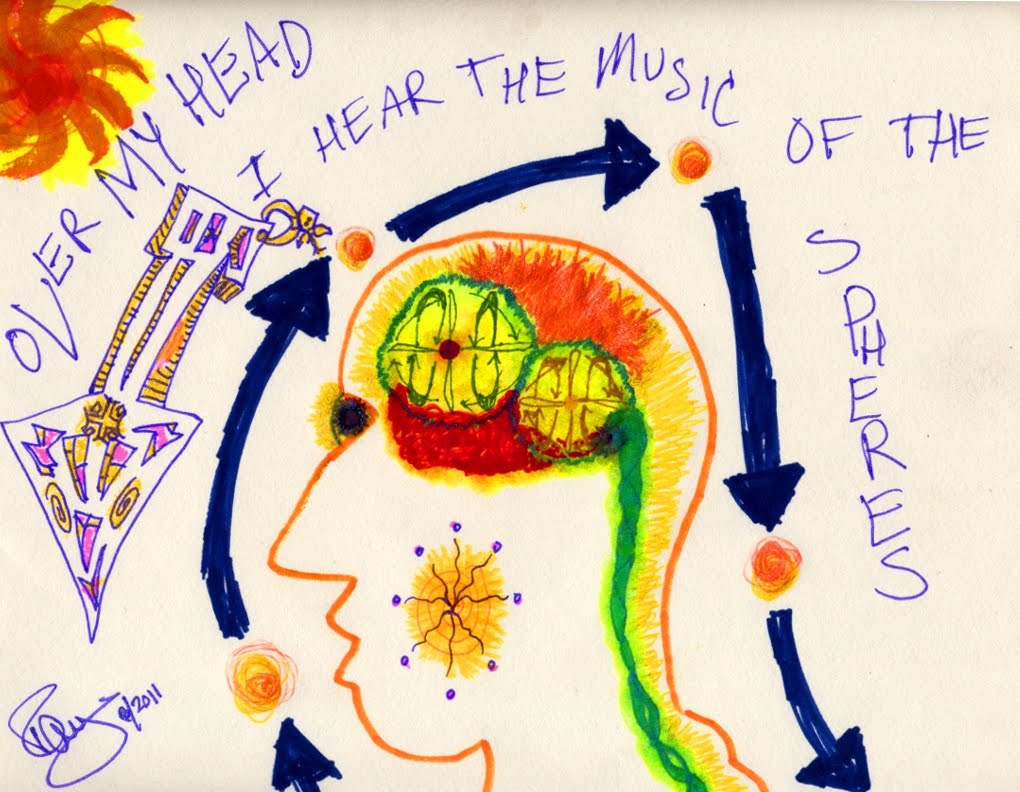 OVER MY HEAD
I HEAR THE MUSIC
OF THE
SPHERES
6/2011